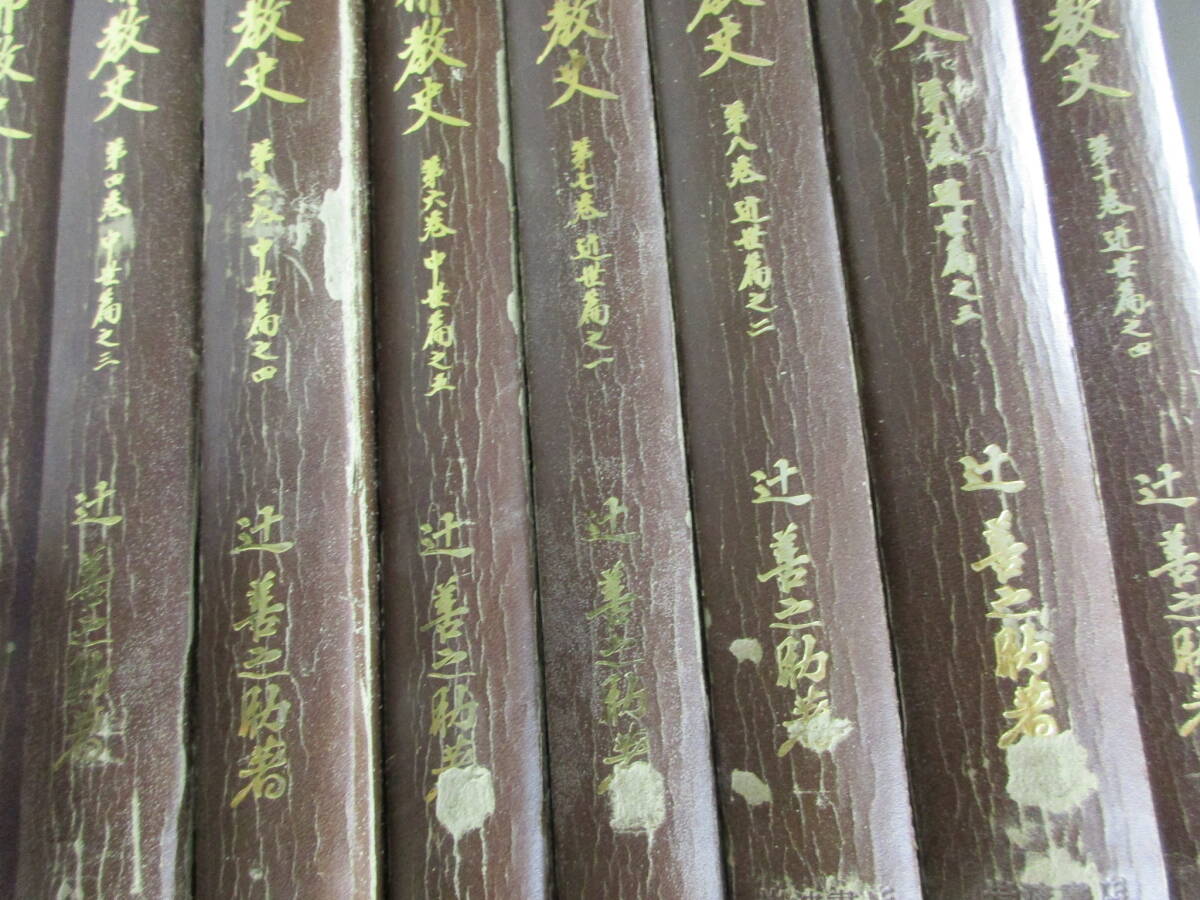 教史
第四巻 中世篇之三
辻 善之助著
教史
第五巻 中世篇之四
辻 善之助著
佛教史
第六巻 中世篇之五
辻 善之助著
教史
第七巻 近世篇之一
辻 善之助著
教史
第八巻 近世篇之二
辻 善之助著
史
第九巻 近世篇之三
辻 善之助著
教史
第十巻 近世篇之四
辻 善之助